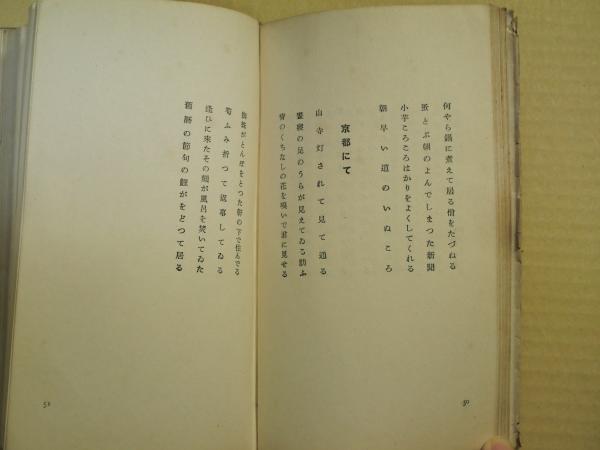 何やら鍋に煮えて居る僧をたづねる
蚤とぶ朝のよんでしまつた新聞
小芋ころころはかりをよくしてくれる
朝早い道のいぬころ
京都にて
山寺灯されて見て通る
昼寝の足のうらが見えてゐる訪ふ
宵のくちなしの花を嗅いで君に見せる
50
蜘蛛がとんぼをとつた軒の下で住んでる
筍ふみ折つて返事してゐる
逢ひに来たその顔が風呂を焚いてゐた
旧暦の節句の鯉がをどつて居る
51